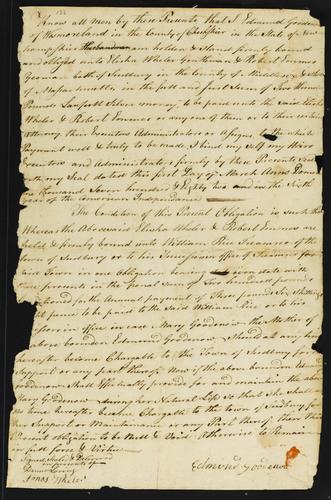 Know all men by these Presents that I Edmund Goodenow
of Westmoreland in the County of Cheshire in the State of New
hampshire Husbandman am holden & Stand firmly bound
and obliged unto Elisha Wheler Gentleman & Robert Emmes
Yeoman both of Sudbury in the County of Middlesex & State
of Massachusetts, in the full and just Sum of Two Hundred
Pounds Lawfull Silver money, to be paid unto the said Elisha
Wheler & Robert Emmes or any one of them or to their certain
Attorney their Executors Administrators or Assigns, to the which
Payment well & truly to be made, I bind my Self my Heirs
Executors and Administrators firmly by these Presents Sealed
with my Seal dated this first Day of March Anno Domini
one Thousand Seven hundred & Eighty two and in the Sixth
Year of the American Independance
The Condition of this Present Obligation is such that
Whereas the Abovesaid Elisha Wheler & Robert Emmes are
held & firmly bound unto William Rice Treasurer of the
Town of Sudbury or to his Successors in office of Treasurer for
said Town in one Obligation bearing even date with
these presents in the Penal Sum of Two hundred pounds
for the Annual payment of Three pounds Six Shillings
pence to be paid to the Said William Rice or to his
Successor in office in case Mary Goodenow the Mother of
the above bounden Edmund Goodenow Should at any time
hereafter become Chargable to the Town of Sudbury for
Support or any part thereof Now if the above bounden Edmund
Goodenow Shall Effectually provide for and maintain the above
Mary Goodenow during her Natural Life so that She shall
no time hereafter become Chargable to the town of Sudbury for
her Support or Maintenance or any Part thereof Then this
Present obligation to be Null & Void Otherwise to Remain
in full force & Virtue
Signed Sealed & Delivered
in presents of
Jonas Wheler
Edmund Goodenow